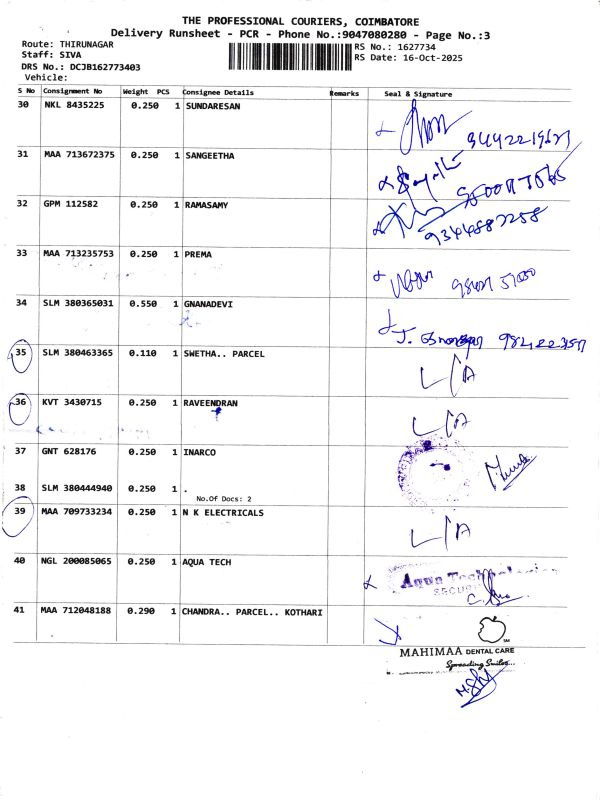 THE PROFESSIONAL COURIERS, COIMBATORE
Delivery Runsheet - PCR - Phone No.:9047080280 - Page No.:3
Route: THIRUNAGAR
RS No.: 1627734
Staff: SIVA
RS Date: 16-Oct-2025
DRS No.: DCJB162773403
Vehicle:
S No Consignment No Weight PCS Consignee Details Remarks Seal & Signature
30 NKL 8435225 0.250 1 SUNDARESAN
31 MAA 713672375 0.250 1 SANGEETHA
32 GPM 112582 0.250 1 RAMASAMY
9344887258
33 MAA 713235753 0.250 1 PREMA
34 SLM 380365031 0.550 1 GNANADEVI
35 SLM 380463365 0.110 1 SWETHA.. PARCEL
L/A
36 KVT 3430715 0.250 1 RAVEENDRAN
L/A
37 GNT 628176 0.250 1 INARCO
38 SLM 380444940 0.250 1 .
No.Of Docs: 2
39 MAA 709733234 0.250 1 N K ELECTRICALS
L/A
40 NGL 200085065 0.250 1 AQUA TECH
Aqua Tech
41 MAA 712048188 0.290 1 CHANDRA.. PARCEL.. KOTHARI
MAHIMAA DENTAL CARE
Spreading Smiles...